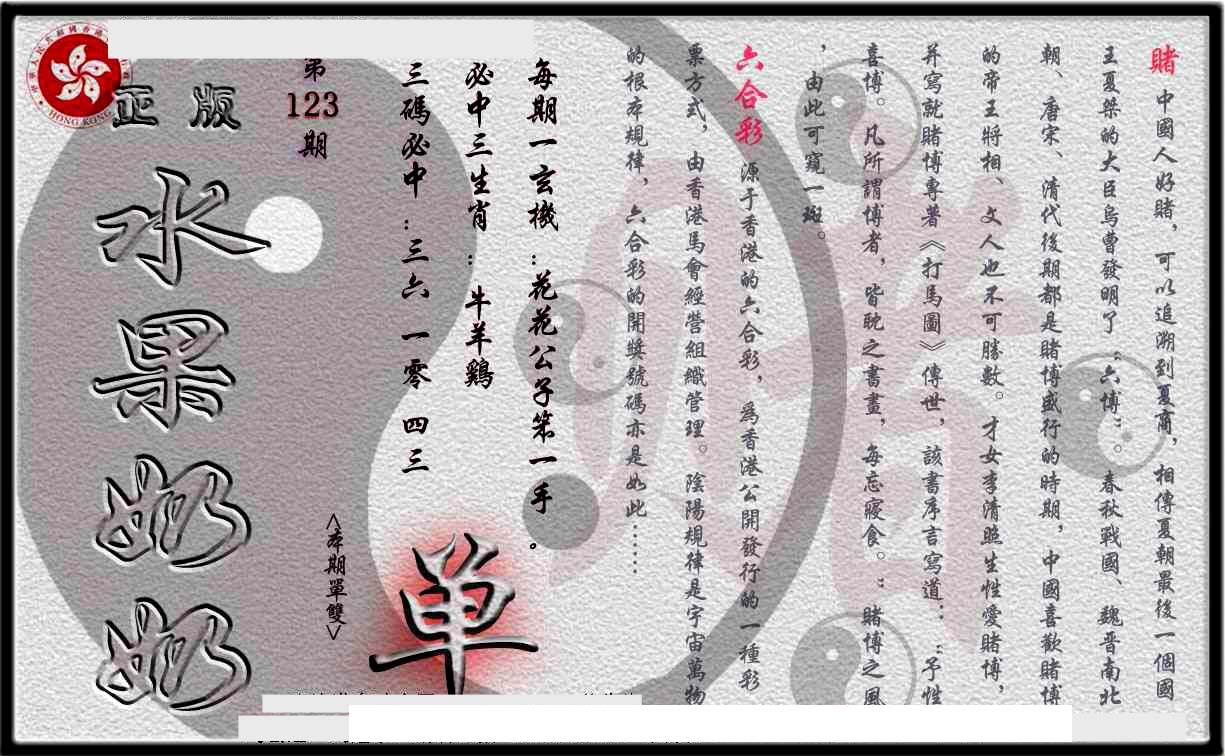 賭 中國人好賭，可以追溯到夏商，相傳夏朝最後一個國
王夏桀的大臣烏曹發明了“六博”。春秋戰國、魏晋南北
朝、唐宋、清代後期都是賭博盛行的時期，中國喜歡賭博
的帝王將相、文人也不可勝數。才女李清照生性愛賭博，
并寫就賭博專著《打馬圖》傳世，該書序言寫道：“予性
喜博。凡所謂博者，皆耽之晝，每忘寢食。”賭博之風
，由此可窺一斑。
六合彩 源于香港的六合彩，爲香港公開發行的一種彩
票方式，由香港馬會經營組織管理。陰陽規律是宇宙萬物
的根本規律，六合彩的開獎號碼亦是如此……
每期一玄機：花花公子第一手。
必中三生肖：牛羊鷄
三碼必中：三六 一零 四三
<本期單雙>
单
第
123
期
正版
水果奶奶
HONG KONG